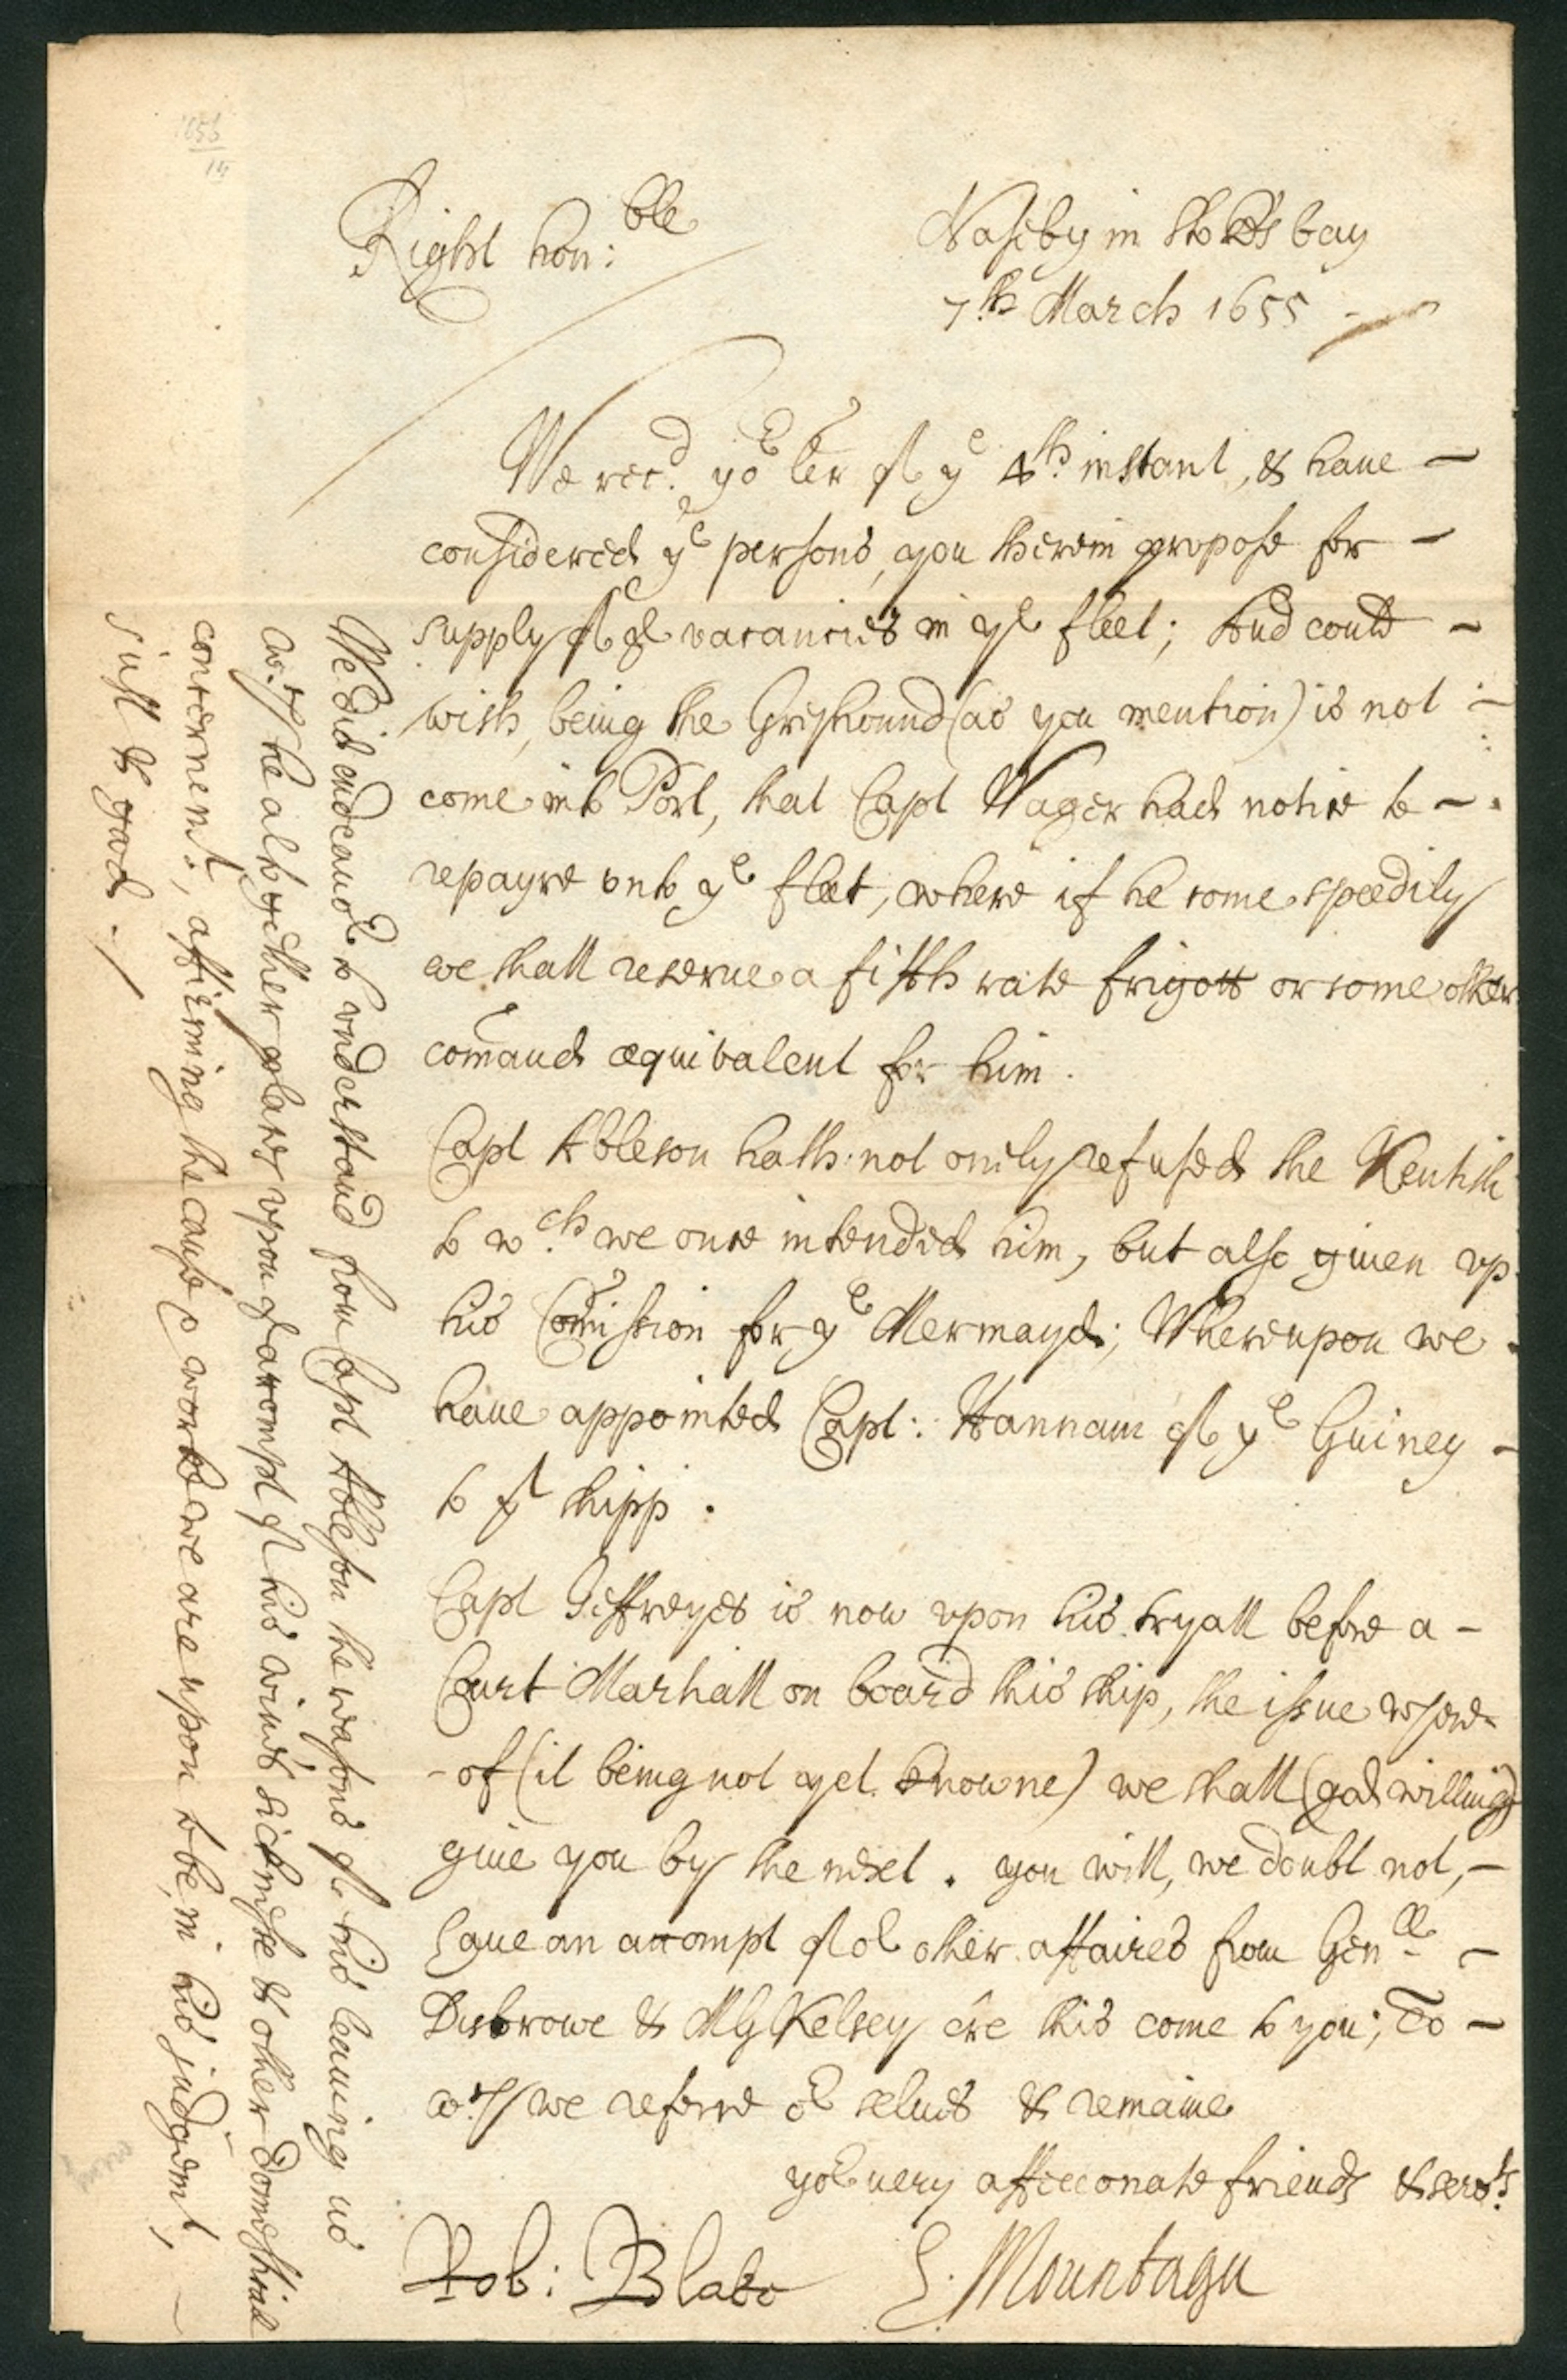 Right hon:ble
Naseby in Stokes bay
7th March 1655
We recd yor ler of ye 4th instant, & haue
considered ye persons, you therein propose for
supply of ye vacancies in ye fleet; And could
wish, being the Greyhound (as you mention) is not
come into Port, that Capt Wager had notice to
repayre vnto ye fleet, where if he come speedily
we shall reserue a fifth rate frigott or some other
comand æquivalent for him.
Capt Ableson hath not onely refused the Kentish
to wch we once intended him, but also giuen vp
his Comission for ye Mermayd; Whereupon we
haue appointed Capt: Hannam of ye Guiney
to yt shipp.
Capt Jeffreyes is now vpon his tryall before a
Court Marshall on board this ship, the issue where-
-of (it being not yet knowne) we shall (god willing)
giue you by the next. you will, we doubt not,
haue an accompt of or other affaires from Genll
Disbrowe & MG Kelsey ere this come to you; To
wch we referre or selues & remaine
yor very affecconate friends & servts
Rob: Blake E. Mountagu
We did endeauor to vnderstand from Capt Ableson the reasons of his leauing us
wch he altogether places vpon accompt of his wiues sicknesse & other domesticall
concernemts, affirming the cause & worke we are upon to be, in his judgemt,
just & good ./